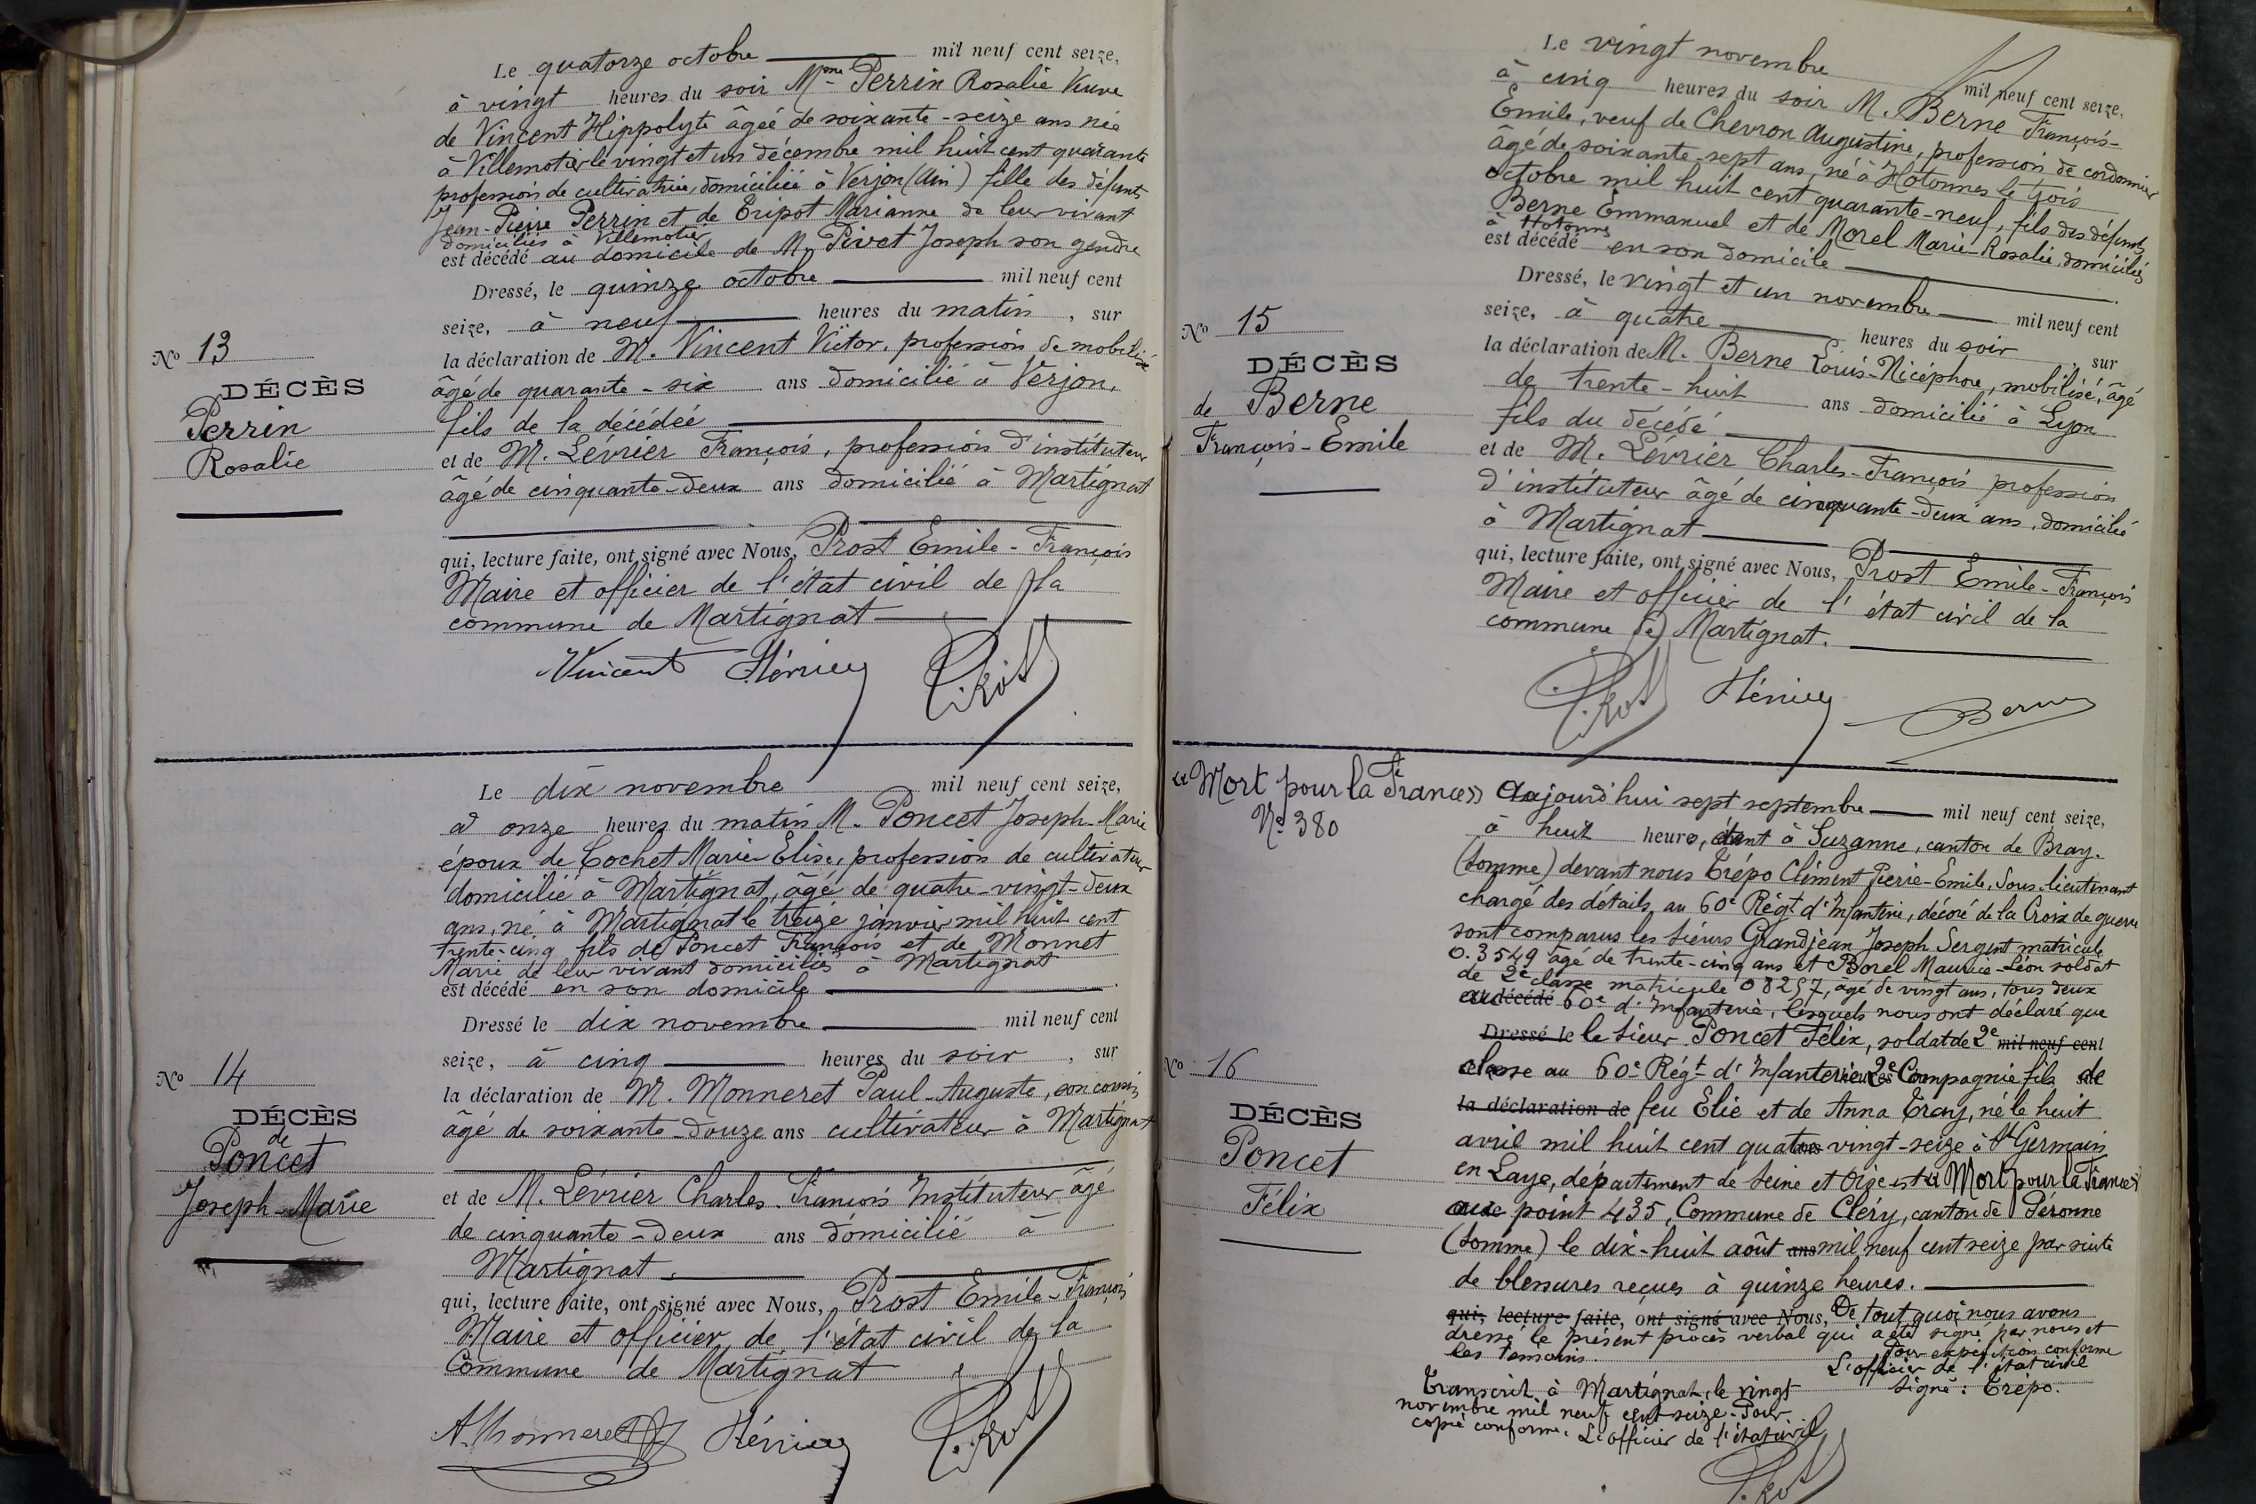 Le quatorze octobre mil neuf cent seize,
à vingt heures du soir Mme Perrin Rosalie Veuve
de Vincent Hippolyte âgée de soixante-seize ans née
à Villemotier le vingt et un décembre mil huit cent quarante
profession de cultivatrice, domiciliée à Verjon (Ain) fille des défunts
Jean-Pierre Perrin et de Tripot Marianne de leur vivant
domiciliés à Villemotier
est décédé au domicile de M. Pivet Joseph son gendre
Dressé, le quinze octobre mil neuf cent
seize, à neuf heures du matin, sur
la déclaration de M. Vincent Victor, profession de mobilisé
âgé de quarante-six ans domicilié à Verjon,
fils de la décédée
et de M. Lévrier François, profession d'instituteur
âgé de cinquante-deux ans domicilié à Martignat
qui, lecture faite, ont signé avec Nous, Prost Emile-François
Maire et officier de l'état civil de la
commune de Martignat
Vincent Lévrier Prost
No 13
DÉCÈS
Perrin
Rosalie
Le dix novembre mil neuf cent seize,
à onze heures du matin M. Poncet Joseph-Marie
époux de Cochet Marie Elise, profession de cultivateur
domicilié à Martignat, âgé de quatre-vingt-deux
ans, né à Martignat le treize janvier mil huit cent
trente-cinq fils de Poncet François et de Monnet
Marie de leur vivant domiciliés à Martignat
est décédé en son domicile
Dressé le dix novembre mil neuf cent
seize, à cinq heures du soir, sur
la déclaration de M. Monneret Paul-Auguste, son cousin
âgé de soixante-douze ans cultivateur à Martignat
et de M. Lévrier Charles-François Instituteur âgé
de cinquante-deux ans domicilié à
Martignat.
qui, lecture faite, ont signé avec Nous, Prost Emile-François
Maire et officier de l'état civil de la
Commune de Martignat
A. Monneret Lévrier Prost
No 14
DÉCÈS
de
Poncet
Joseph-Marie
Le vingt novembre mil neuf cent seize,
à cinq heures du soir M. Berne François-
Emile, veuf de Chevron Augustine, profession de cordonnier
âgé de soixante-sept ans, né à Hotonnes le trois
octobre mil huit cent quarante-neuf, fils des défunts
Berne Emmanuel et de Morel Marie-Rosalie, domiciliés
à Hotonnes
est décédé en son domicile
Dressé, le vingt et un novembre mil neuf cent
seize, à quatre heures du soir, sur
la déclaration de M. Berne Louis-Nicéphore, mobilisé, âgé
de trente-huit ans domicilié à Lyon
fils du décédé
et de M. Lévrier Charles-François profession
d'instituteur âgé de cinquante-deux ans, domicilié
à Martignat
qui, lecture faite, ont signé avec Nous, Prost Emile-François
Maire et officier de l'état civil de la
commune de Martignat.
Prost Lévrier Berne
No 15
DÉCÈS
de Berne
François-Emile
« Mort pour la France »
No 380
Aujourd'hui sept septembre mil neuf cent seize,
à huit heures, étant à Suzanne, canton de Bray.
(Somme) devant nous Trépo Clément Pierre-Emile, Sous-lieutenant
chargé des détails au 60e Régt d'Infanterie, décoré de la Croix de guerre
sont comparus les sieurs Grandjean Joseph Sergent matricule
0.3549 âgé de trente-cinq ans et Borel Maurice-Léon soldat
de 2e classe matricule 08257, âgé de vingt ans, tous deux
au décédé 60e d'Infanterie, lesquels nous ont déclaré que
Dressé le le sieur Poncet Félix, soldat de 2e mil neuf cent
classe au 60e Régt d'Infanterie heures 2e Compagnie fils de
la déclaration de feu Elie et de Anna Tray, né le huit
avril mil huit cent quatre vingt-seize à St Germain
en Laye, département de Seine et Oise est « Mort pour la France »
au point 435, Commune de Cléry, canton de Péronne
(Somme) le dix-huit août ans mil neuf cent seize par suite
de blessures reçues à quinze heures.
qui, lecture faite, ont signé avec Nous, De tout quoi nous avons
dressé le présent procès verbal qui a été signé par nous et
les témoins. Pour expédition conforme
L'officier de l'état civil
Signé : Trépo.
Transcrit à Martignat, le vingt
novembre mil neuf cent seize. Pour
copie conforme. L'officier de l'état civil
Prost
No 16
DÉCÈS
Poncet
Félix